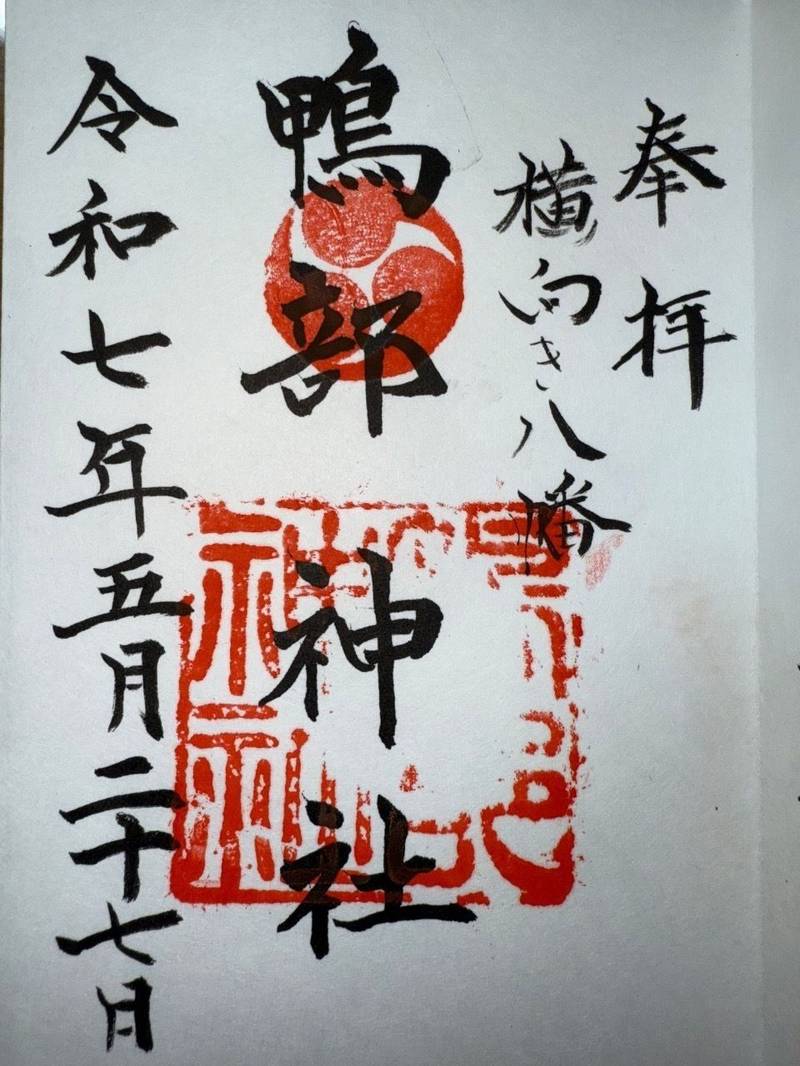 奉拝
横向き八幡
鴨部神社
令和七年五月二十七日